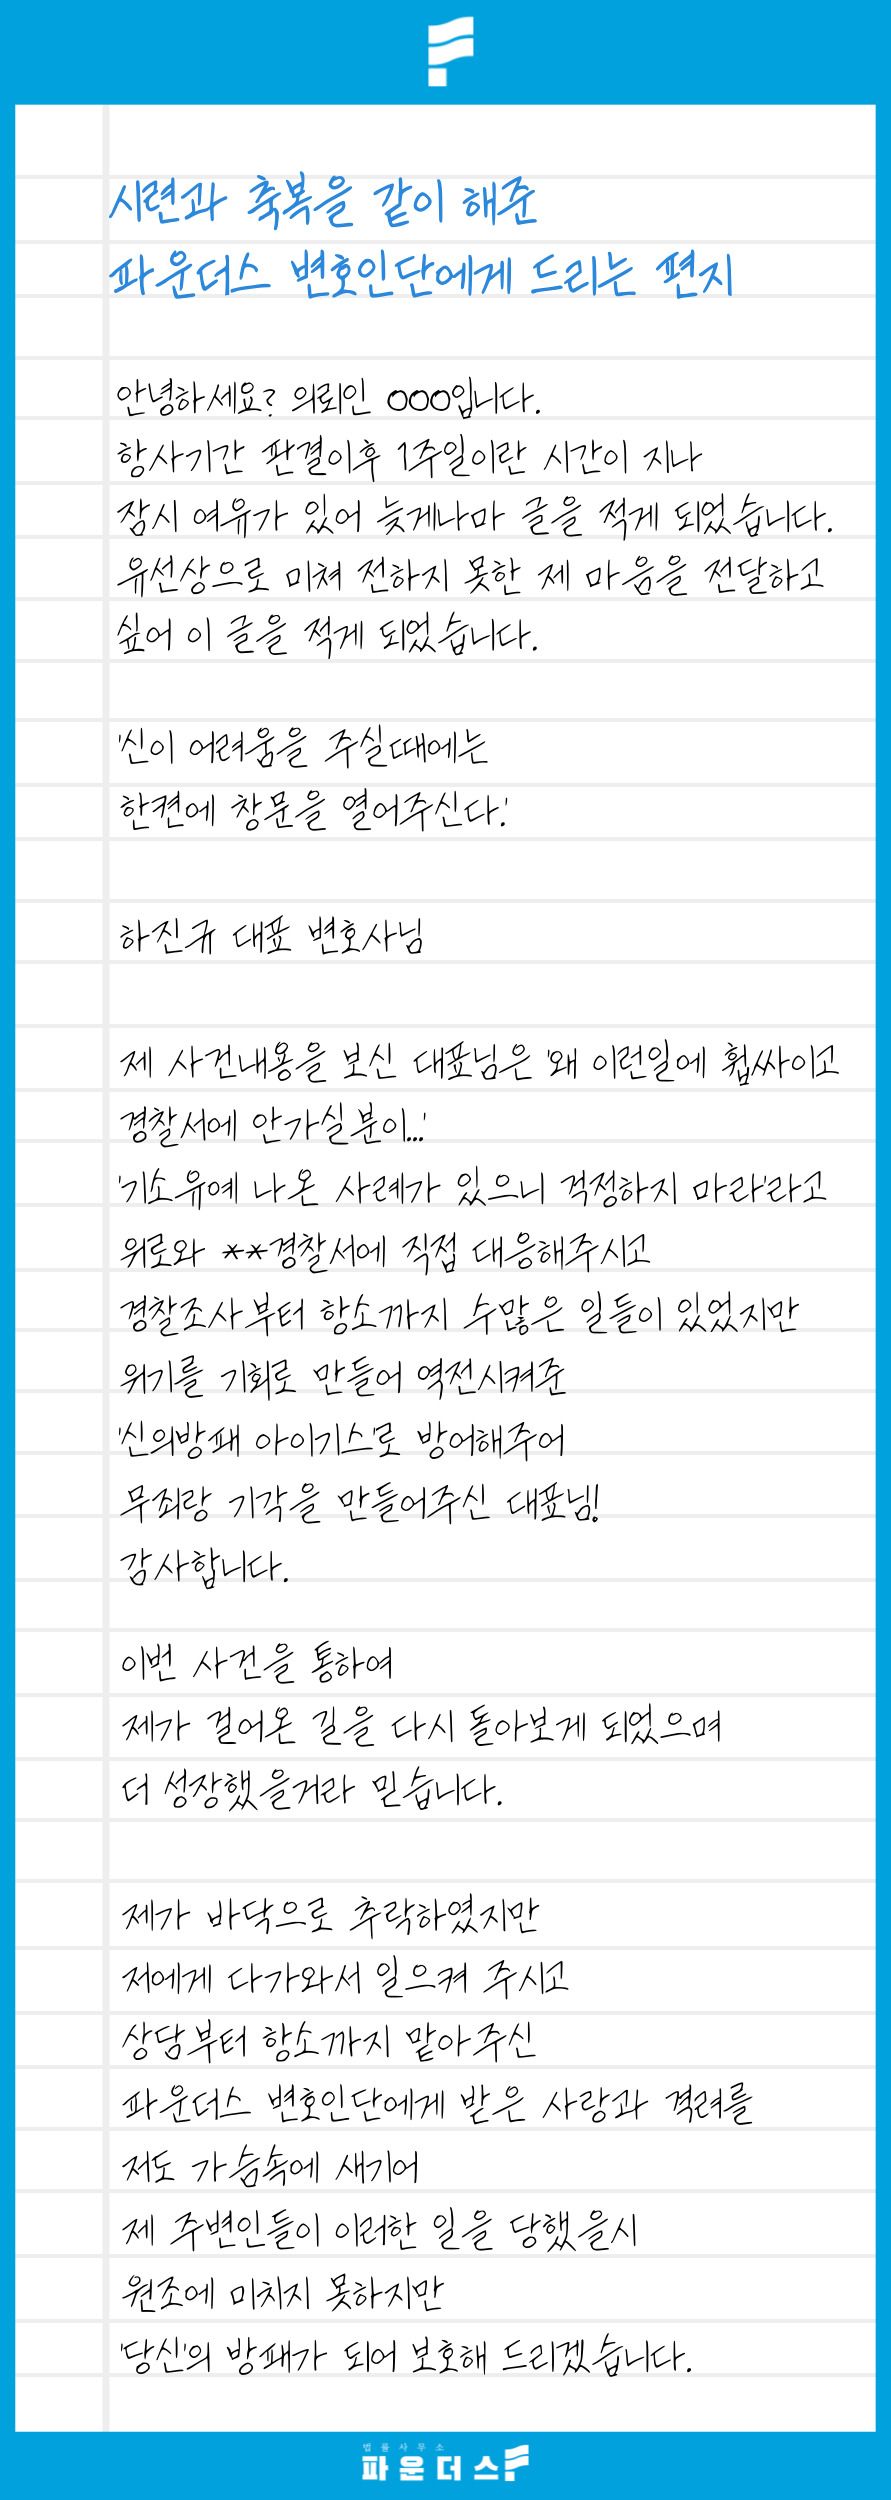 시련과 축복을 같이 해준
파운더스 변호인단에게 드리는 편지
안녕하세요? 의뢰인 OOO입니다.
항사기간 판결이후 1주일이란 시간이 지나
잠시 여유가 있어 늦게나마 글을 적게 되었습니다.
유선상으로 미쳐 전하지 못한 제 마음을 전달하고
싶어 이 글을 적게 되었습니다.
'신이 어려움을 주실때에는
한켠에 창문을 열어주신다.'
하진규 대표 변호사님
제 사건내용을 보신 대표님은 '왜 이런일에 휩싸이고
경찰서에 안가실분이...'
'기소유예 나온 사례가 있으니 걱정하지 마라'라고
위로와 **경찰서에 직접 대응해주시고
경찰조사부터 항소까지 수많은 일들이 있었지만
위기를 기회로 만들어 역전시켜준
'신의방패 아이기스'로 방어해주어
무죄랑 기각을 만들어주신 대표님!
감사합니다.
이번 사건을 통하여
제가 걸어온 길을 다시 돌아보게 되었으며
더 성장했을거라 믿습니다.
제가 바닥으로 추락하였지만
저에게 다가와서 일으켜 주시고
상담부터 항소까지 맡아주신
파운더스 변호인단에게 받은 사랑과 격려를
저도 가슴속에 새기어
제 주변인들이 이러한 일을 당했을시
원조에 미치지 못하지만
'당신'의 방패가 되어 보호해 드리겠습니다.
법률사무소
파운더스